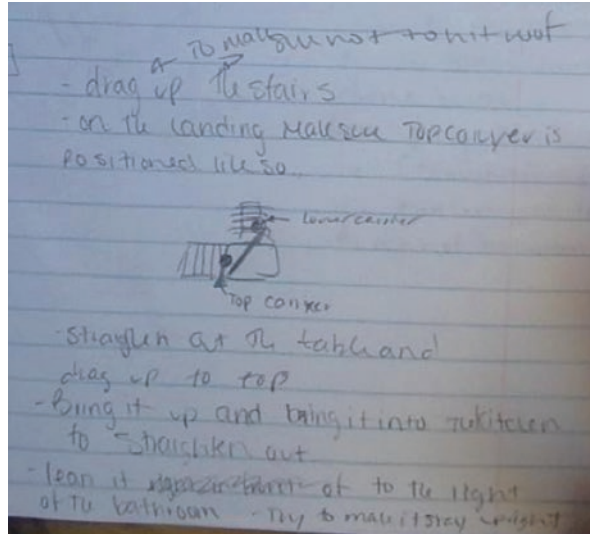 To make su not to hit roof
- drag up the stairs
- on the landing make sure Top conyer is
positioned like so
Lower carrier
Top conyer
- straighten out the table and
drag up to top
- Bring it up and bring it into the kitchen
to straighten out
- lean it to the right
of the bathroom - Try to make it stay upright